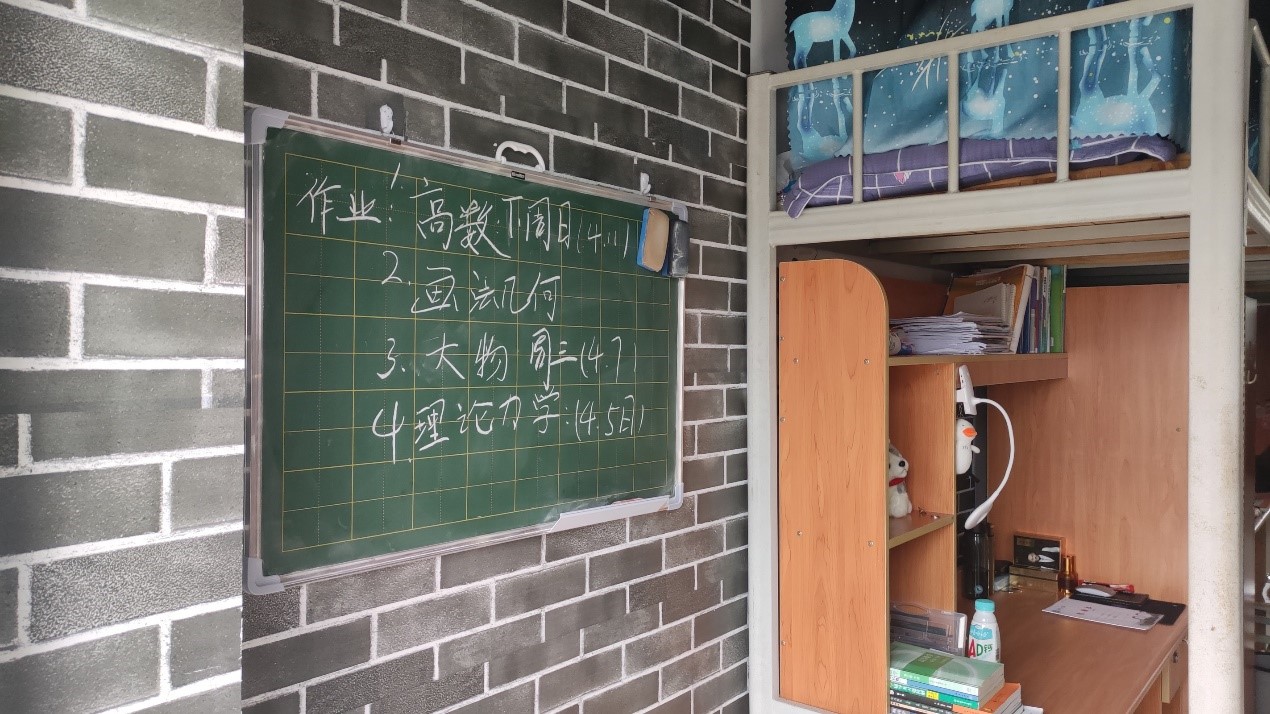 作业: 1. 高数:下周日(4.11)
2. 画法几何
3. 大物 周三(4.7)
4. 理论力学:(4.5日)
AD